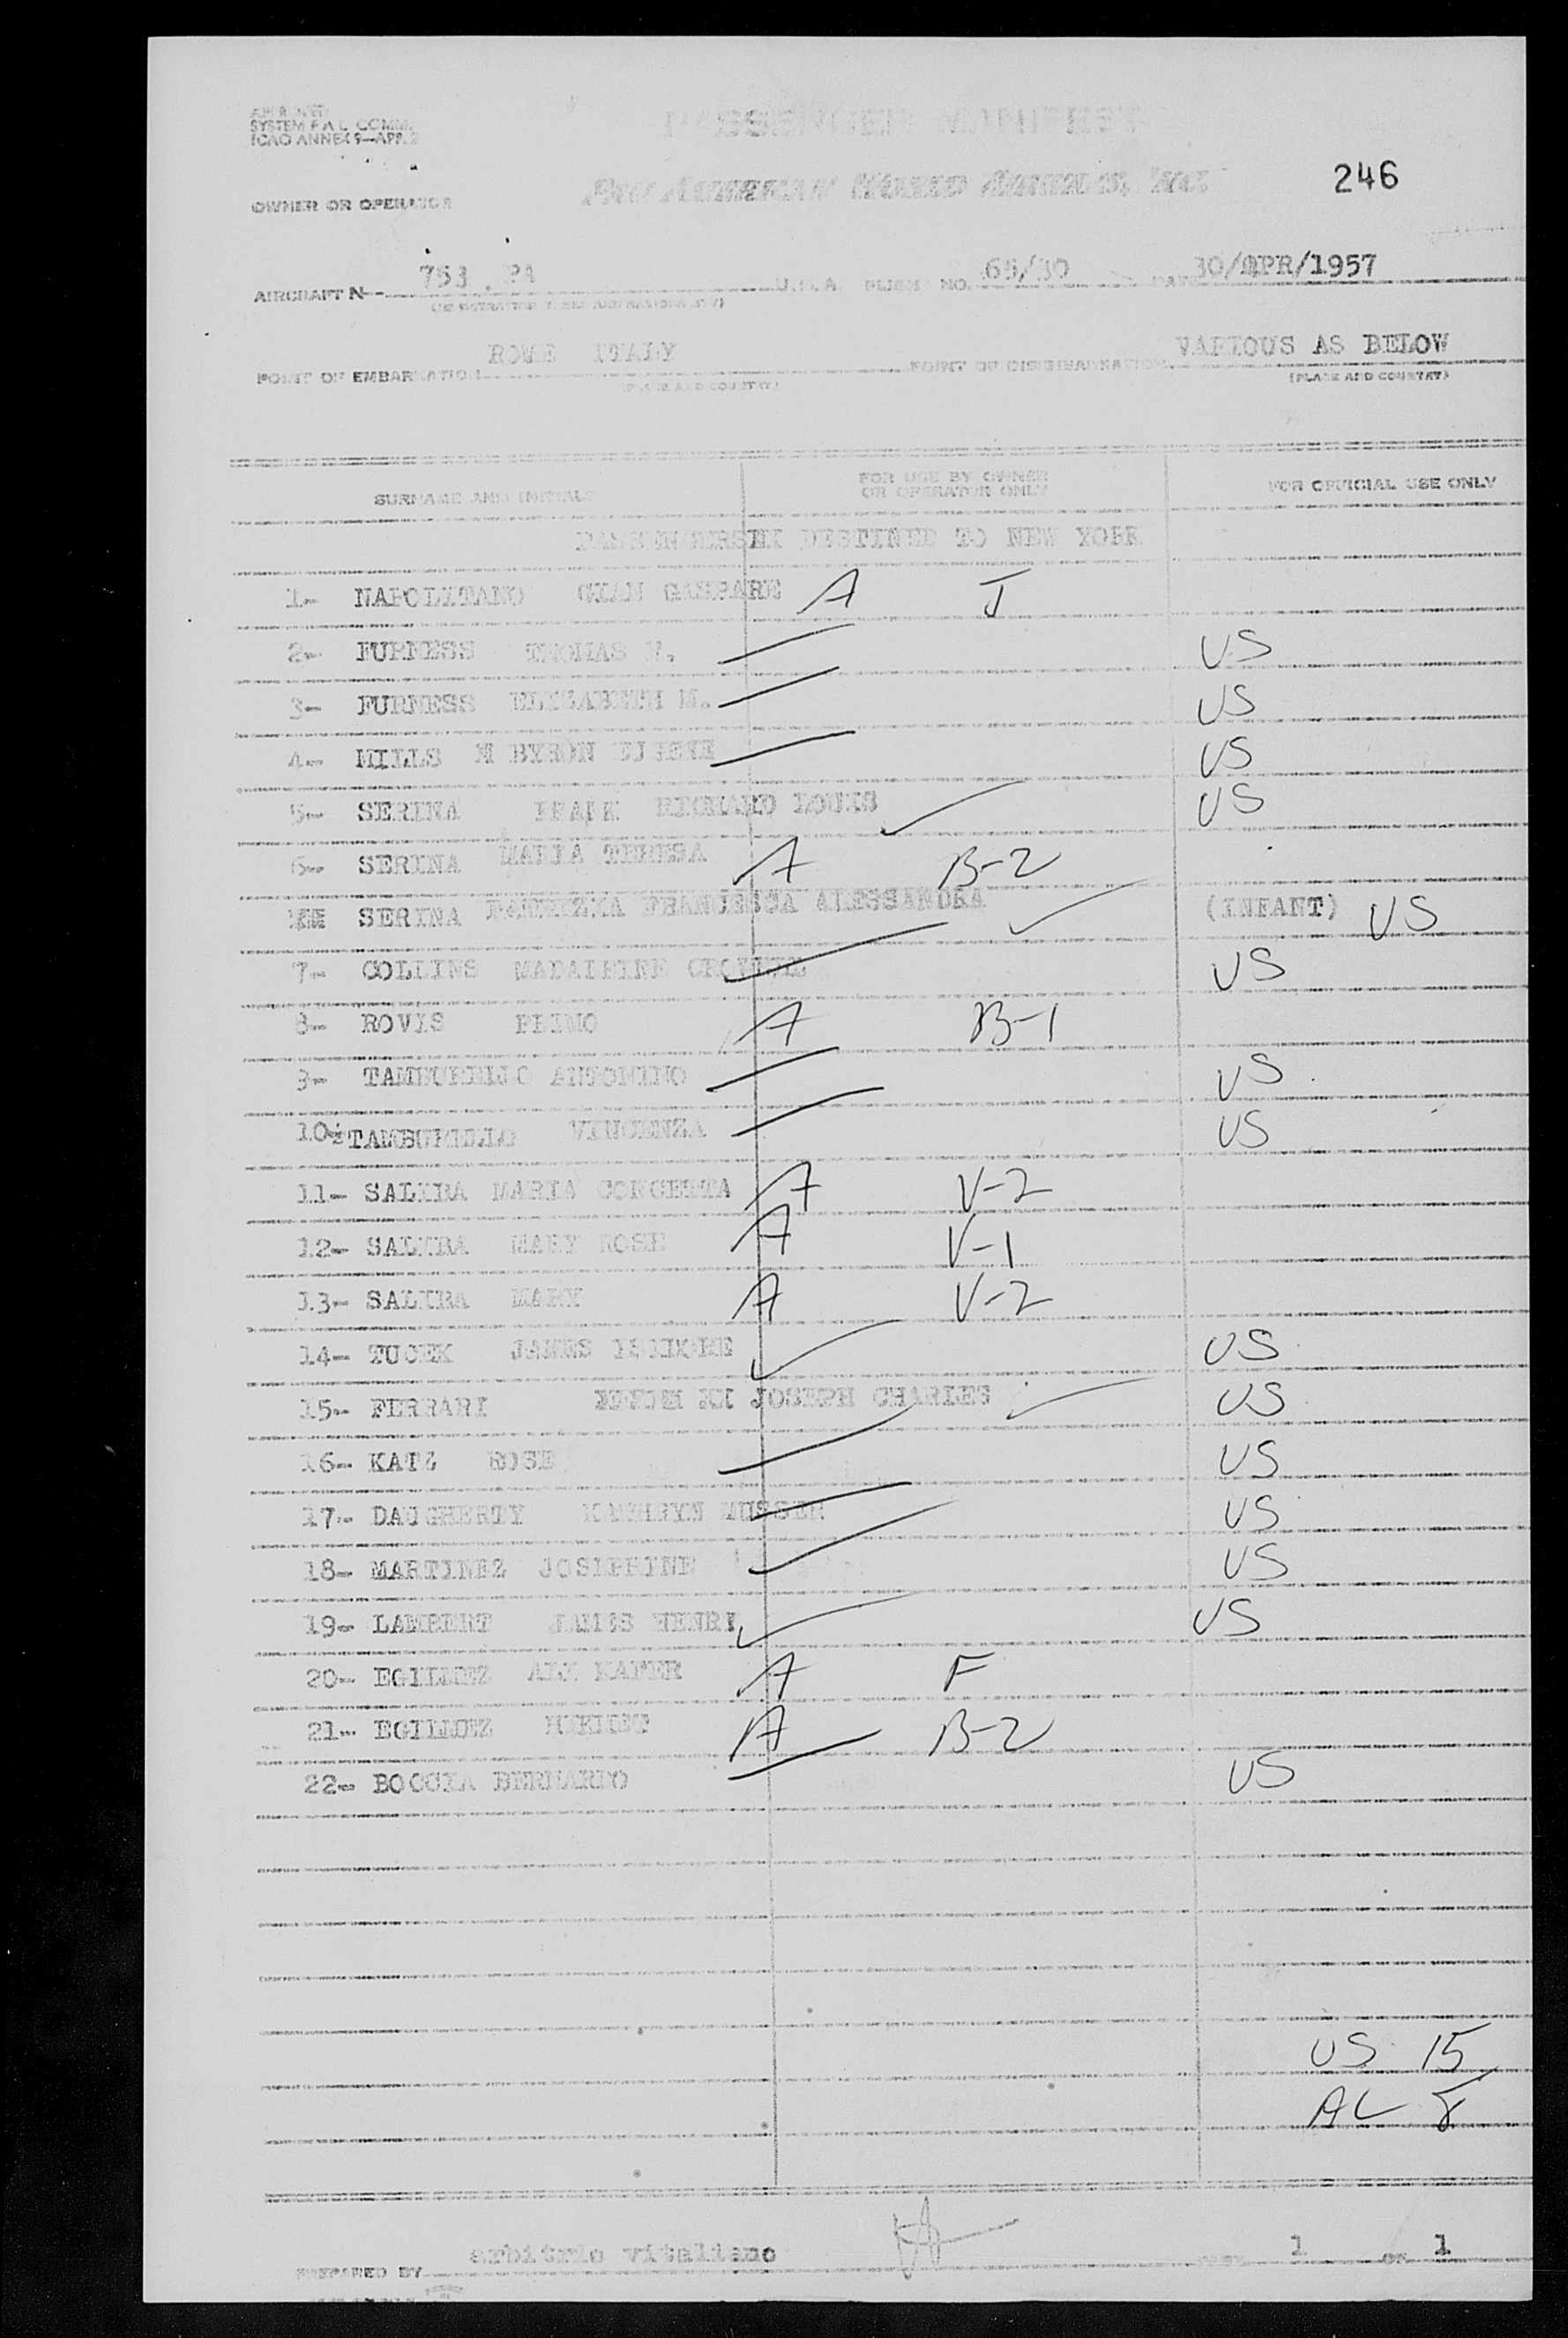 SYSTEM F A L COMM.
ICAO ANNEX 9—APP. 2
PASSENGER MANIFEST
PAN AMERICAN WORLD AIRWAYS, INC.
246
OWNER OR OPERATOR
AIRCRAFT N- 753 PA U.S.A. FLIGHT NO. 65/30 DATE 30/APR/1957
POINT OF EMBARKATION ROME ITALY POINT OF DISEMBARKATION VARIOUS AS BELOW
(PLACE AND COUNTRY) (PLACE AND COUNTRY)
SURNAME AND INITIALS FOR USE BY OWNER OR OPERATOR ONLY FOR OFFICIAL USE ONLY
DESTINED TO NEW YORK
1- NAPOLITANO GIAN GASPARE A J
2- FURNESS THOMAS US
3- FURNESS ELIZABETH M. US
4- MILLS M BYRON EUGENE US
5- SERINA RICHARD LOUIS US
6- SERINA MARIA TERESA A B-2
SERINA PATRIZIA FRANCESCA ALESSANDRA (INFANT) US
7- COLLINS US
8- ROVIS PRIMO A B-1
9- TAMBURELLO ANTONINO US
10- TAMBURELLO VINCENZA US
11- MARIA CONCETTA A V-2
12- MARY ROSE A V-1
13- MARY A V-2
14- TUCEK JAMES US
15- FERRARI JOSEPH CHARLES US
16- KATZ ROSE US
17- DAUGHERTY KATHRYN MUSSER US
18- MARTINEZ JOSEPHINE US
19- LAMBERT JAMES HENRY US
20- A F
21- A B-2
22- BOCCIA BERNARDO US
US 15
AL 8
PREPARED BY arbitrio vitaliano 1 OF 1